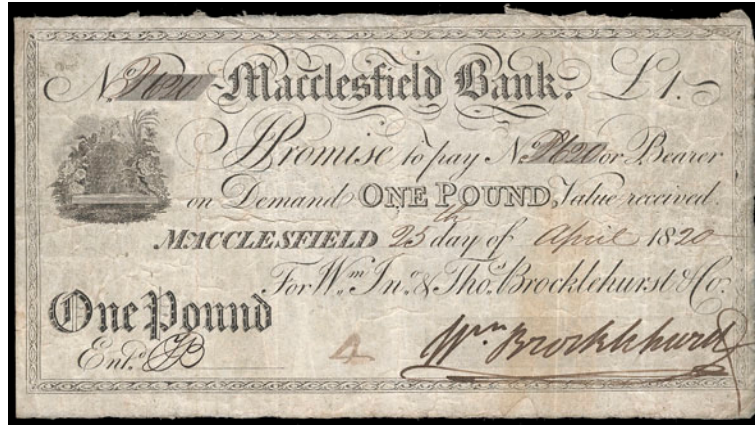 No P1620 Macclesfield Bank. £1.
I Promise to pay No P1620 or Bearer
on Demand ONE POUND, Value received.
MACCLESFIELD 25th day of April 1820
For Wm. Jno. & Thos. Brocklehurst & Co.
One Pound
Entd.
4
Wm Brocklehurst